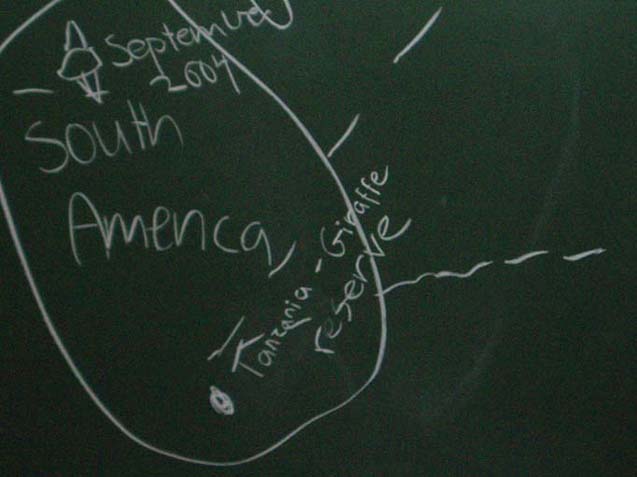 September
2004
South
America
Tanzania - Giraffe
reserve